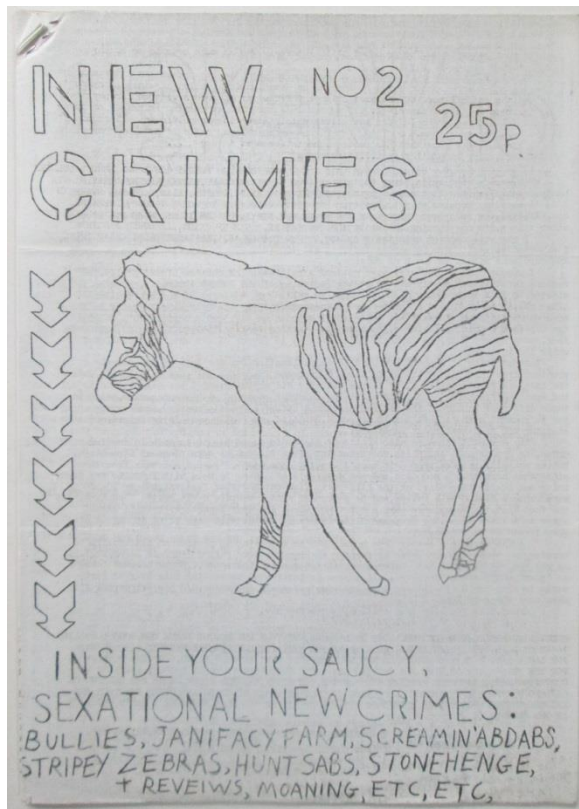 NEW NO 2
25p.
CRIMES
INSIDE YOUR SAUCY,
SEXATIONAL NEW CRIMES:
BULLIES, JANIFACY FARM, SCREAMIN'ABDABS,
STRIPEY ZEBRAS, HUNT SABS, STONEHENGE,
+ REVEIWS, MOANING, ETC, ETC,